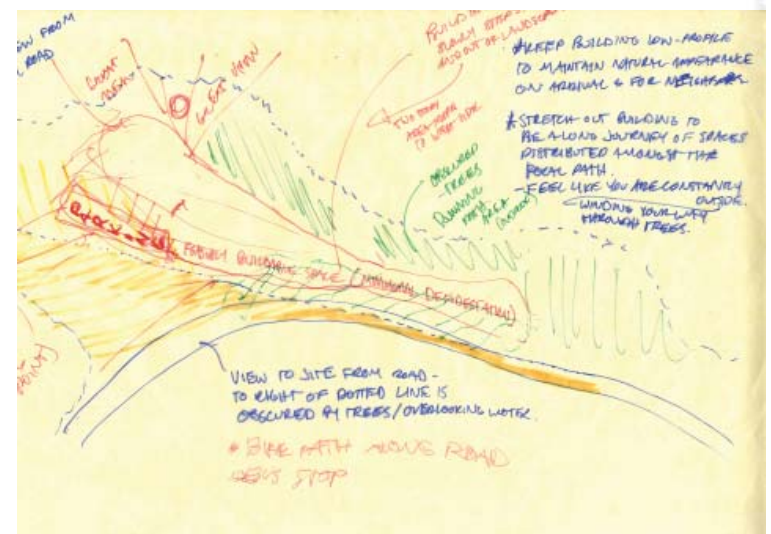 VIEW FROM
ROAD
GREAT
VIEW
GREAT VIEW
OUT OF LANDSCAPE
*KEEP BUILDING LOW-PROFILE
TO MAINTAIN NATURAL APPEARANCE
ON ARRIVAL & FOR NEIGHBORS
*STRETCH OUT BUILDING TO
BE A LONG JOURNEY OF SPACES
DISTRIBUTED AMONGST THE
FOCAL PATH.
-FEEL LIKE YOU ARE CONSTANTLY
OUTSIDE.
WINDING YOUR WAY
THROUGH TREES.
OBSCURED
TREES
RUNNING
PATH
AREA
BUILDING SPACE (MINIMAL DEFORESTATION)
VIEW TO SITE FROM ROAD -
TO RIGHT OF DOTTED LINE IS
OBSCURED BY TREES/OVERLOOKING WATER.
* BIKE PATH ALONG ROAD
BUS STOP